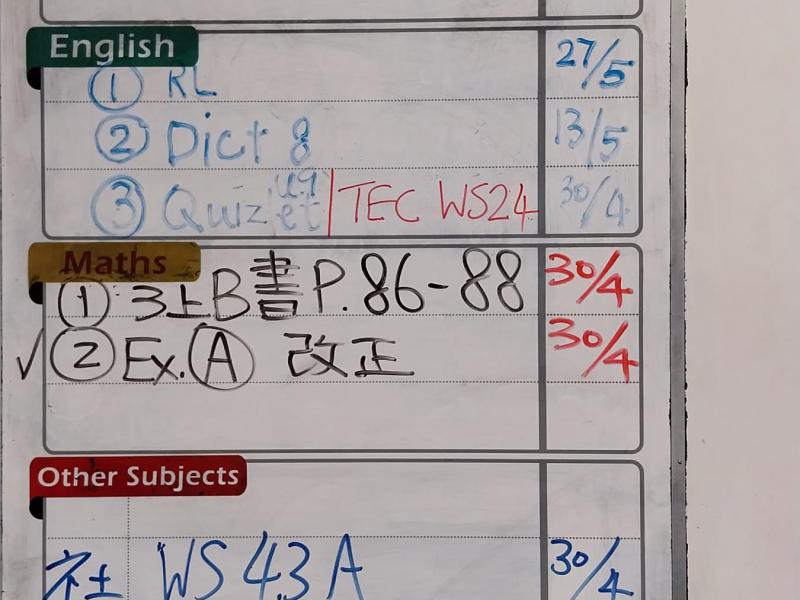 English
① RL 27/5
② Dict 8 13/5
③ Quizlet U.9 | TEC WS24 30/4
Maths
① 3上B書 P.86-88 30/4
✓ ② Ex. Ⓐ 改正 30/4
Other Subjects
社 WS 4.3 A 30/4